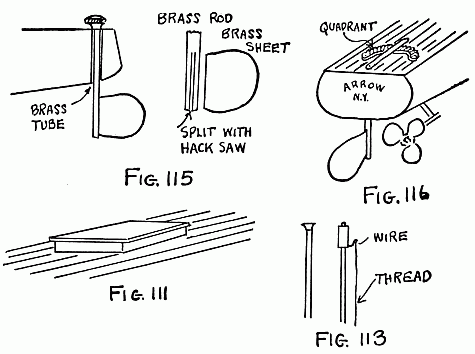 BRASS ROD
BRASS
SHEET
BRASS
TUBE
SPLIT WITH
HACK SAW
FIG. 115
QUADRANT
ARROW
N.Y.
FIG. 116
FIG. 111
WIRE
THREAD
FIG. 113